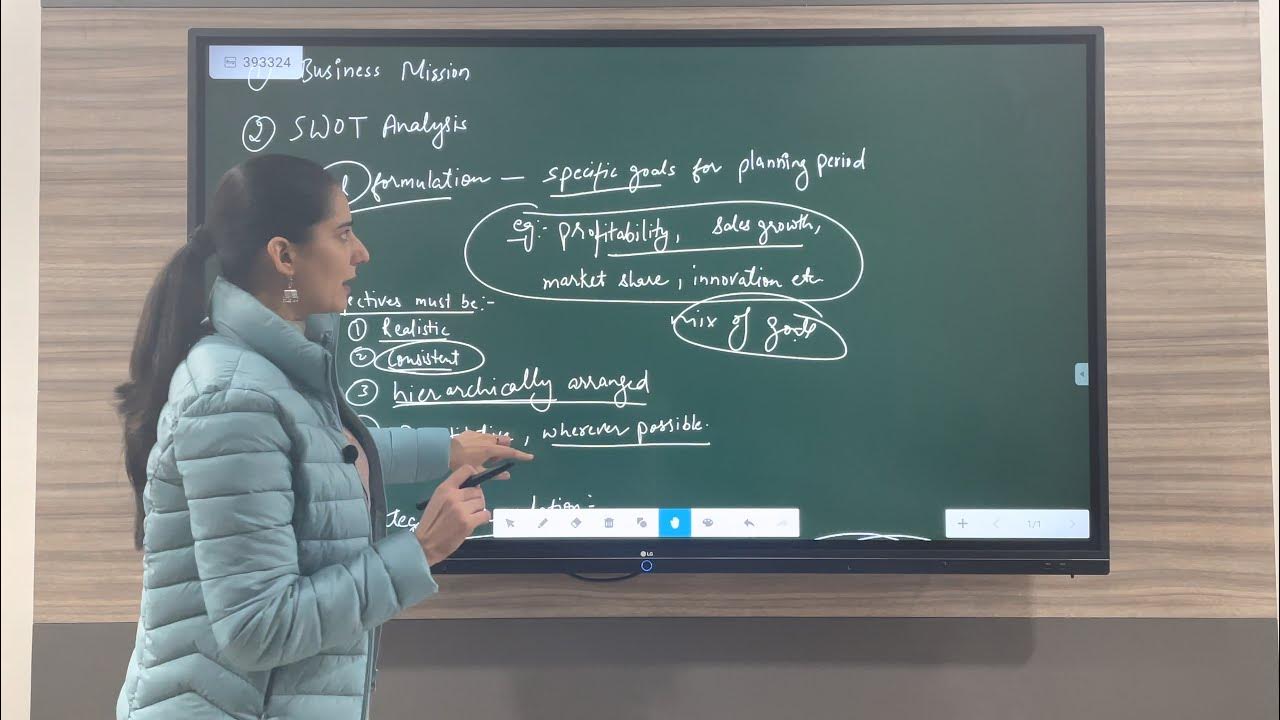 393324
1) Business Mission
② SWOT Analysis
formulation — specific goals for planning period
eg:- profitability, sales growth,
market share, innovation etc
mix of goals
ectives must be:-
① Realistic
② Consistent
③ hierarchically arranged
, wherever possible.
lation:-
1/1
LG